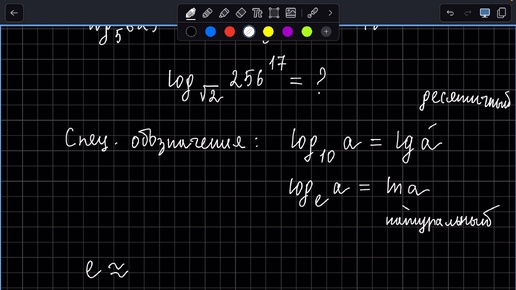 log_{√2} 256^{17} = ?
десятичный
Спец. обозначения: log_{10} a = lg a
log_e a = ln a
натуральный
e ≈